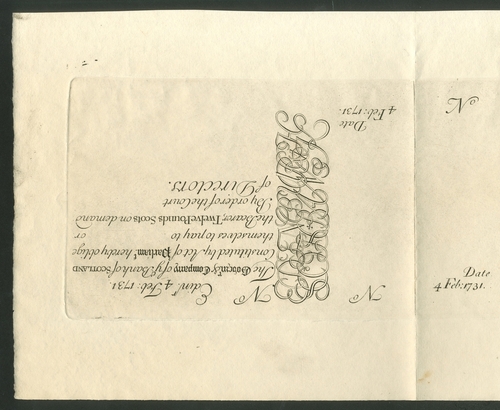 Edin.r 4 Feb: 1731
No
The Govern.r & Company of ye Bank of SCOTLAND
Constituted by Act of Parliam.t hereby oblige
themselves to pay to or
the Bearer, Twelve Pounds Scots on demand
By order of the Court
of DIRECTORS.
No
Date
4 Feb: 1731.
No
Date
4 Feb: 1731.